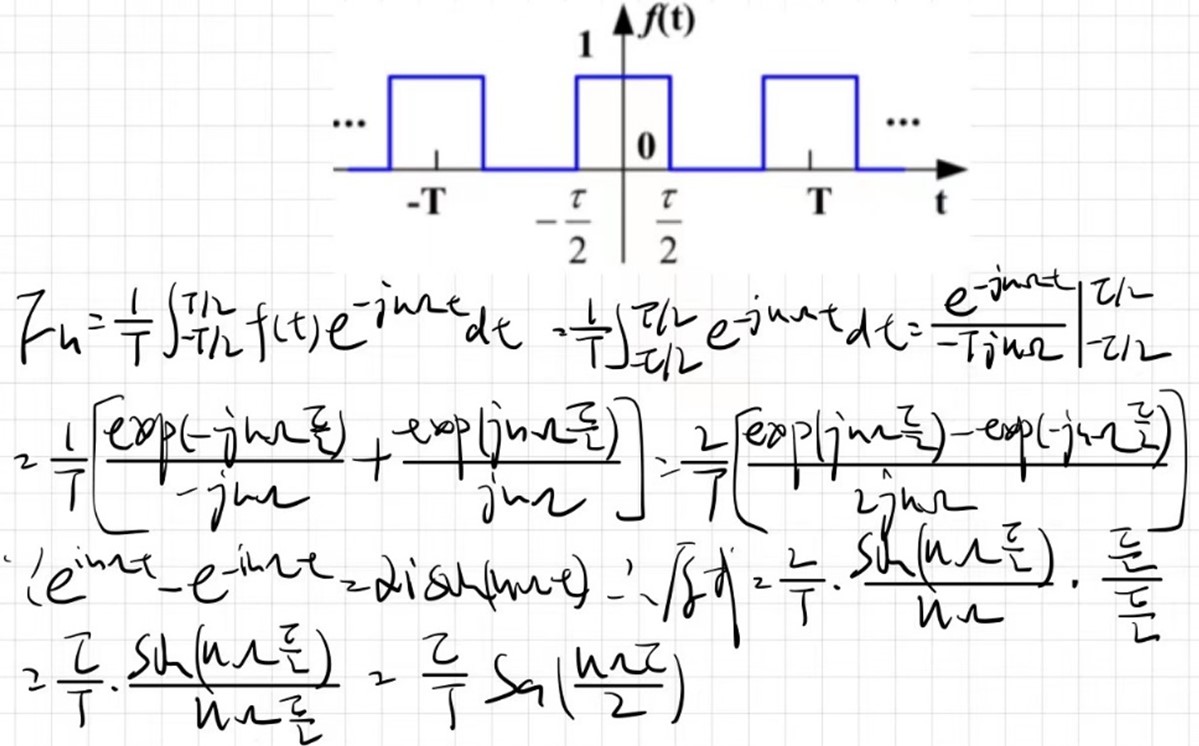 f(t)
1
... ...
0
-T -τ/2 τ/2 T t
Fn = 1/T ∫_{-T/2}^{T/2} f(t)e^{-jnΩt}dt = 1/T ∫_{-τ/2}^{τ/2} e^{-jnΩt}dt = e^{-jnΩt}/(-TjnΩ) |_{-τ/2}^{τ/2}
= 1/T [exp(-jnΩτ/2)/(-jnΩ) + exp(jnΩτ/2)/(jnΩ)] = 2/T [(exp(jnΩτ/2)-exp(-jnΩτ/2))/(2jnΩ)]
∵ e^{inΩt}-e^{-inΩt}=2i sin(nΩt) ∴ 原式 = 2/T · sin(nΩτ/2)/(nΩ) · (τ/2)/(τ/2)
= τ/T · sin(nΩτ/2)/(nΩτ/2) = τ/T Sa(nΩτ/2)